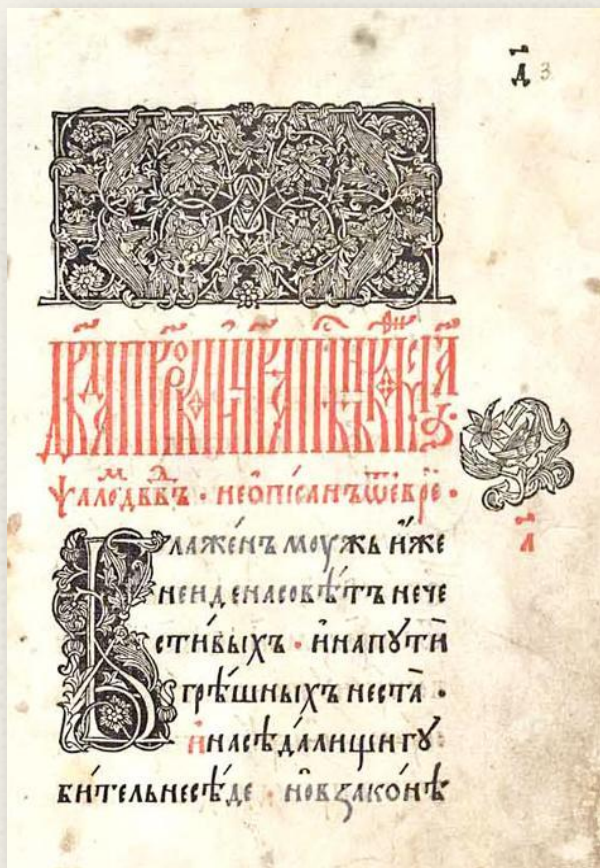 д҃ 3
ѱалⷨ дв҃двъ · не ѡпи́санъ ѿ е҆вре́ · а҃
Блаже́нъ моу́жь и҆́же
не и҆́де на совѣ́тъ нече
сти́выхъ · и҆ на пꙋти̂
грѣ́шныхъ не ста̀ ·
и҆ на сѣда́лищи гꙋ
би́тель не сѣ́де · но в ꙁако́нѣ